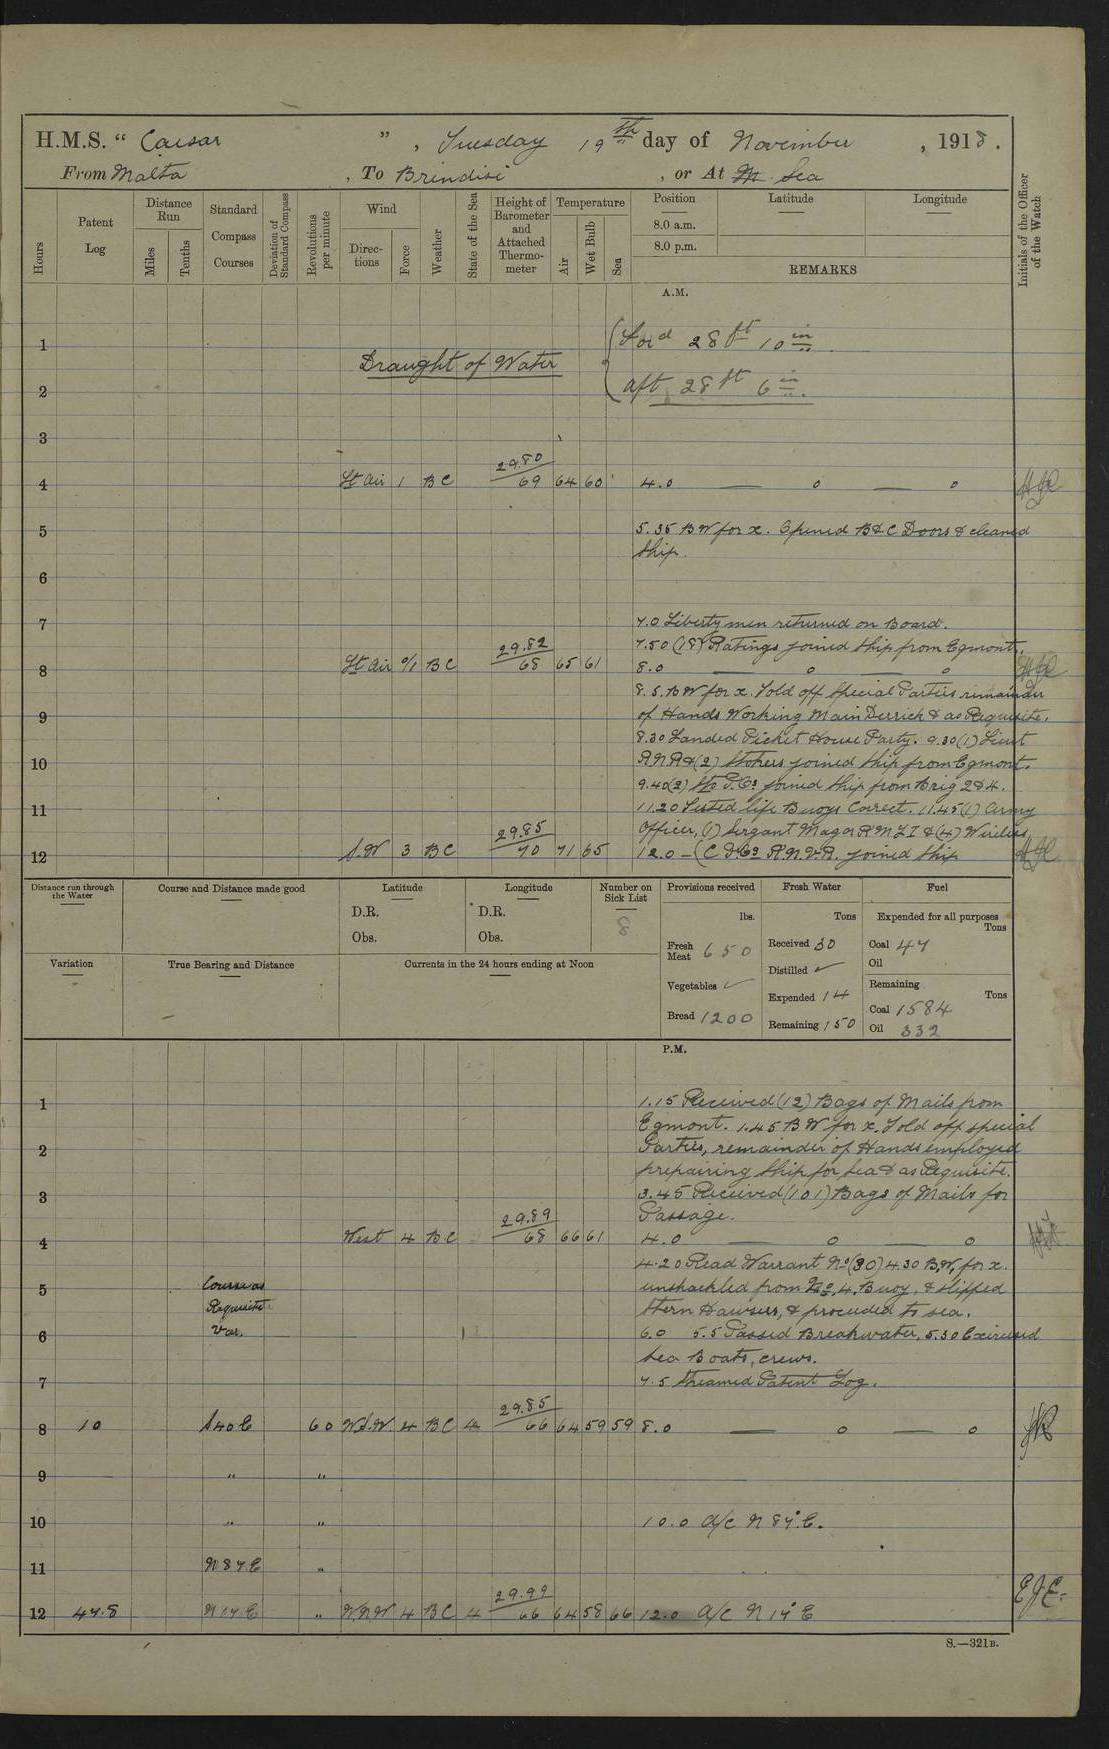 H.M.S. “ Caesar ” , Tuesday 19th day of November , 1918 .
From Malta , To Brindisi , or At Sea
Hours
Patent Log
Distance Run
Miles
Tenths
Standard Compass Courses
Deviation of Standard Compass
Revolutions per minute
Wind
Direc-tions
Force
Weather
State of the Sea
Height of Barometer and Attached Thermo-meter
Temperature
Air
Wet Bulb
Sea
Position Latitude Longitude
8.0 a.m.
8.0 p.m.
REMARKS
Initials of the Officer of the Watch
A.M.
1 Ford 28 ft 10 in
Draught of Water
2 aft 28 ft 6 in.
3
29.80
4 Lt Air 1 BC 69 64 60 4.0 — o — o
5 5.35 BW for x. Opened B&C Doors & cleaned
Ship.
6
7 7.0 Liberty men returned on Board.
29.82 7.50 (18) Ratings joined Ship from Egmont.
8 Lt Air 0/1 BC 68 65 61 8.0 — o — o
8.5. BW for x. Told off Special Parties remainder
9 of Hands Working Main Derrick & as Requisite.
8.30 Landed Picket House Party. 9.30 (1) Lieut
10 RNR & (2) Stokers joined Ship from Egmont.
9.40 (2) joined Ship from Brig 2&4.
11 11.20 Tested life Buoys Correct. 11.45 (1) Army
29.85 Officer, (1) Sergant Magor RMLI & (4) Wireless
12 S.W 3 BC 70 71 65 12.0 – R.N.V.R. joined Ship
Distance run through the Water
Course and Distance made good
Latitude
D.R.
Obs.
Longitude
D.R.
Obs.
Number on Sick List
8
Provisions received
lbs.
Fresh Meat 650
Vegetables ✓
Bread 1200
Fresh Water
Tons
Received 30
Distilled ✓
Expended 14
Remaining 150
Fuel
Expended for all purposes
Tons
Coal 47
Oil
Remaining
Tons
Coal 1584
Oil 332
Variation
True Bearing and Distance
Currents in the 24 hours ending at Noon
P.M.
1 1.15 Received (12) Bags of Mails from
Egmont. 1.45 BW for x. Told off special
2 Parties, remainder of Hands employed
prepairing Ship for Sea & as Requisite.
3 3.45 Received (101) Bags of Mails for
29.89 Passage.
4 West 4 BC 68 66 61 4.0 — o — o
4.20 Read Warrant No (30) 4.30 BW, for x.
5 Course as unshackled from No. 4. Buoy, & slipped
Requisite Stern Hawsers, & proceeded to sea.
6 Var. 6.0 5.5 Passed Breakwater, 5.30 Exircised
Sea Boats, crews.
7 7.5 Streamed Patent Log.
29.85
8 10 S40E 60 W.S.W. 4 BC 4 66 64 59 59 8.0 — o — o
9 " "
10 " " 10.0 A/C N 87° E.
11 N 87 E "
29.99
12 47.8 N 17 E " WNW 4 BC 4 66 64 58 66 12.0 A/C N 17° E
EJE.
S.—321B.